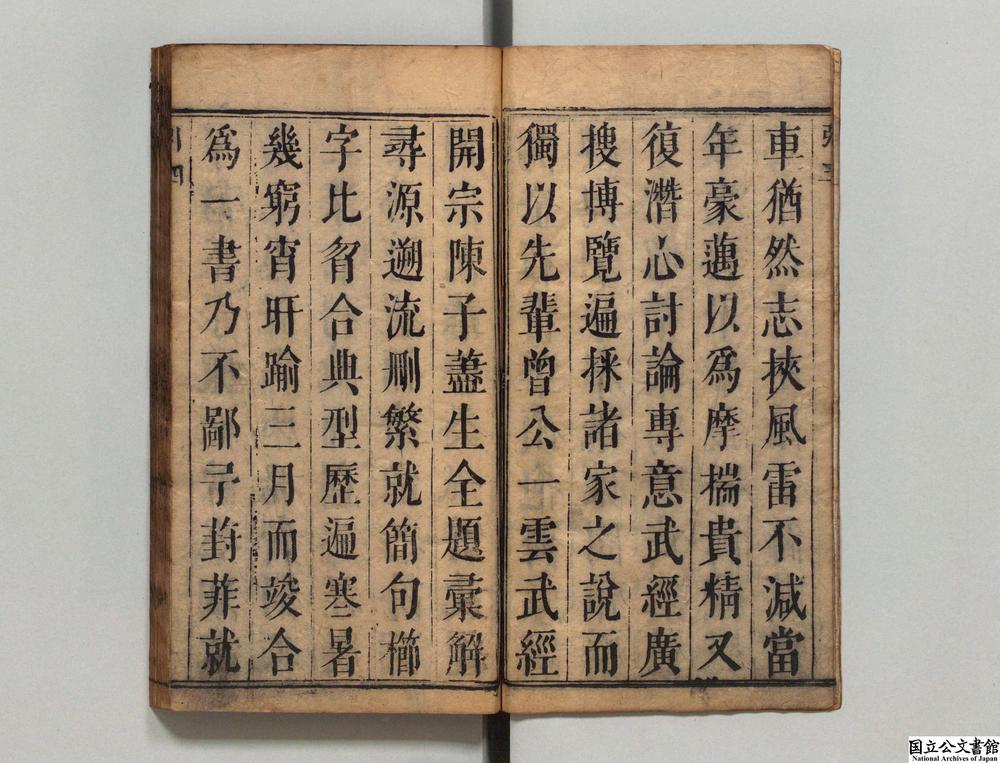 車猶然志挾風雷不減當
年豪邁以爲摩揣貴精又
復潛心討論專意武經廣
搜博覽遍採諸家之說而
獨以先輩曾公一雲武經
開宗陳子藎生全題彙解
尋源遡流刪繁就簡句櫛
字比胥合典型歷遍寒暑
幾窮宵旰踰三月而竣合
爲一書乃不鄙予葑菲就
国立公文書館
National Archives of Japan